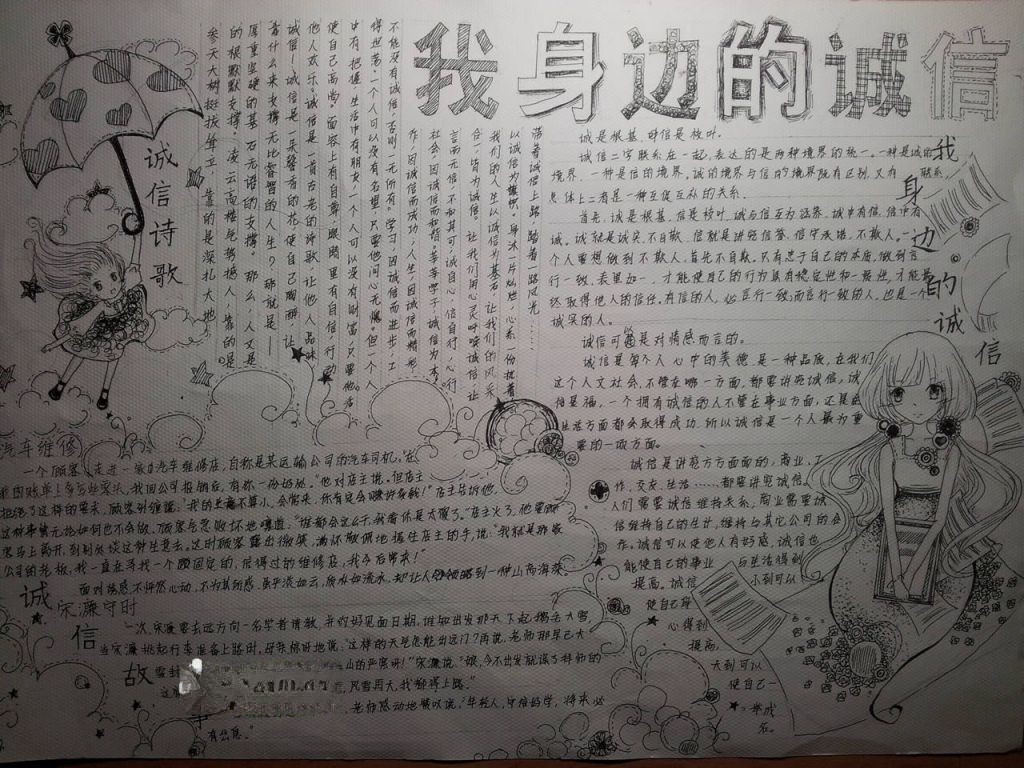 我身边的诚信
诚信诗歌
参天大树挺拔耸立,靠的是深扎大地
的根默默支撑。凌云高楼气势撼人,靠的是
厚重坚硬的基石无语的支撑。那么,人又是
靠什么来支撑无比睿智的人生?那就是——
诚信!诚信是一朵馨香的花,使自己陶醉,让
他人欢乐。诚信是一首古老的诗歌,让他人品味
使自己高尚。面容上有自尊,眼睛里有自信,行动
中有把握,生活中有朋友,一个人可以没有财富,只要他活
得坦荡。一个人可以没有名望,只要他问心无愧。但一个人
不能没有诚信,否则一无所有。学习,因诚信而进步,工
作,因诚信而成功;人生,因诚信而精彩,
社会,因诚信而和谐。莘莘学子,诚信为本。
言而无信,不知其可。诚自心,信自行,心行
合一,皆为诚信。让我们用心灵呼唤诚信,让
我们的人生以诚信为基石,让我们的风采
以诚信为旗帜。身沐一片灿烂,心系一份执着
沿着诚信上路,踏着一路风光……
我身边的诚信
诚是根基,时信是枝叶.
诚信二字联系在一起,表达的是两种境界的统一。一种是诚的
境界,一种是信的境界,诚的境界与信的境界既有区别,又有联系,
总体上二者是一种互促互从的关系.
首先,诚是根基,信是枝叶,诚与信互为涵养,诚中有信,信中有
诚。诚就是诚实,不自欺,信就是讲究信誉,信守承诺,不欺人。一
个人要想做到不欺人,首先不自欺。只有忠于自己的本质,做到言
行一致,表里如一,才能使自己的行为具有稳定性和一惯性,才能最
终取得他人的信任。有信的人,必言行一致,而言行一致的人,也是一个
诚实的人。
诚信可是对情感而言的。
诚信是每个人心中的美德,是一种品质,在我们
这个人文社会,不管在哪一方面,都要讲究诚信,诚
信是福,一个拥有诚信的人不管在事业方面,还是在
生活方面都会取得成功,所以诚信是一个人最为重
要的一项方面。
诚信是讲究方方面面的,商业,工
作,交友,生活……都要讲究诚信。
人们需要诚信维持关系,商业需要诚
信维持自己的生计,维持与其它公司的合
作。诚信可以使他人有好感,诚信也
能使自己的事业与生活得到
提高,诚信小到可以
使自己身
心得到
提高,
大到可以
使自己一
举成
名。
诚信故
汽车维修
一个顾客走进一家汽车维修店,自称是某运输公司的汽车司机。“在
我的账单上多写些零头,我回公司报销后,有你一份好处。”他对店主说。但店主
拒绝了这样的要求,顾客纠缠道:“我的生意不算小,会常来,你肯定会赚好多钱!”店主告诉他,
这件事情无论如何也不会做。顾客气急败坏地嚷道:“谁都会这么干,我看你是太傻了。”店主火了,他要顾
客马上离开,到别处谈这种生意去。这时顾客露出微笑,满怀敬佩地握住店主的手,说:“我就是那家
公司的老板,我一直在寻找一个固定的,信得过的维修店,我今后常来!”
面对诱惑不怦然心动,不为其所惑,虽平淡如云,质朴如流水,却让人领略到一种山高海深。
宋濂守时
一次,宋濂要去远方向一名学者请教,并约好见面日期,谁知出发那天下起鹅毛大雪,
当宋濂挑起行李准备上路时,母亲惊讶地说:“这样的天气怎能出远门?再说,老师那里早已大
雪封山的严寒呀!”宋濂说:“娘,今不出发就误了拜师的
风雪再大,我都得上路。”
老师感动地赞叹说:“年轻人,守信好学,将来必
有出息。”